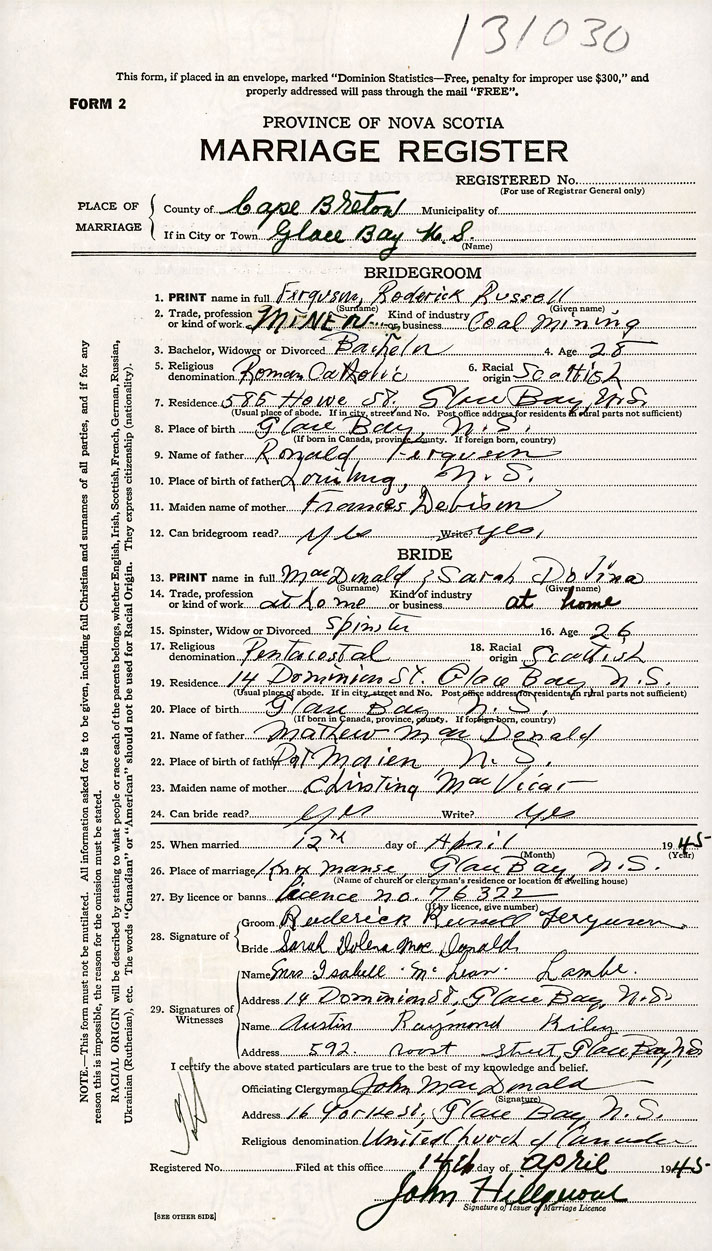 131030
This form, if placed in an envelope, marked “Dominion Statistics—Free, penalty for improper use $300,” and
properly addressed will pass through the mail “FREE”.
FORM 2
PROVINCE OF NOVA SCOTIA
MARRIAGE REGISTER
REGISTERED No.
(For use of Registrar General only)
PLACE OF MARRIAGE
County of Cape Breton Municipality of
If in City or Town Glace Bay N.S.
(Name)
BRIDEGROOM
1. PRINT name in full Ferguson, Roderick Russell
(Surname) (Given name)
2. Trade, profession or kind of work MINER Kind of industry or business Coal Mining
3. Bachelor, Widower or Divorced Bachelor 4. Age 28
5. Religious denomination Roman Catholic 6. Racial origin Scottish
7. Residence 585 Howe St. Glace Bay, N.S.
(Usual place of abode. If in city, street and No. Post office address for residents in rural parts not sufficient)
8. Place of birth Glace Bay, N.S.
(If born in Canada, province, county. If foreign born, country)
9. Name of father Ronald Ferguson
10. Place of birth of father N.S.
11. Maiden name of mother Frances
12. Can bridegroom read? yes Write? yes,
BRIDE
13. PRINT name in full MacDonald, Sarah Dovina
(Surname) (Given name)
14. Trade, profession or kind of work at home Kind of industry or business at home
15. Spinster, Widow or Divorced Spinster 16. Age 26
17. Religious denomination Pentacostal 18. Racial origin Scottish
19. Residence 14 Dominion St. Glace Bay N.S.
(Usual place of abode. If in city, street and No. Post office address for residents in rural parts not sufficient)
20. Place of birth Glace Bay N.S.
(If born in Canada, province, county. If foreign born, country)
21. Name of father Mathew MacDonald
22. Place of birth of father Pt Morien N.S.
23. Maiden name of mother Christing MacVicar
24. Can bride read? yes Write? yes
25. When married 12th day of April 1945
(Month) (Year)
26. Place of marriage Knox manse, Glace Bay, N.S.
(Name of church or clergyman's residence or location of dwelling house)
27. By licence or banns licence no. 76322
(If by licence, give number)
28. Signature of
Groom Roderick Russell Ferguson
Bride Sarah Dolena MacDonald
29. Signatures of Witnesses
Name Mrs Isabell McLean Lambe.
Address 14 Dominion St, Glace Bay, N.S.
Name Austin Raymond Kiley
Address 592. street, Glace Bay, N.S.
I certify the above stated particulars are true to the best of my knowledge and belief.
Officiating Clergyman John MacDonald
(Signature)
Address 16 York St, Glace Bay N.S.
Religious denomination United Church of Canada
Registered No. Filed at this office 14th day of April 1945
John
Signature of Issuer of Marriage Licence
[SEE OTHER SIDE]
NOTE.—This form must not be mutilated. All information asked for is to be given, including full Christian and surnames of all parties, and if for any
reason this is impossible, the reason for the omission must be stated.
RACIAL ORIGIN will be described by stating to what people or race each of the parents belongs, whether English, Irish, Scottish, French, German, Russian,
Ukrainian (Ruthenian), etc. The words “Canadian” or “American” should not be used for Racial Origin. They express citizenship (nationality).